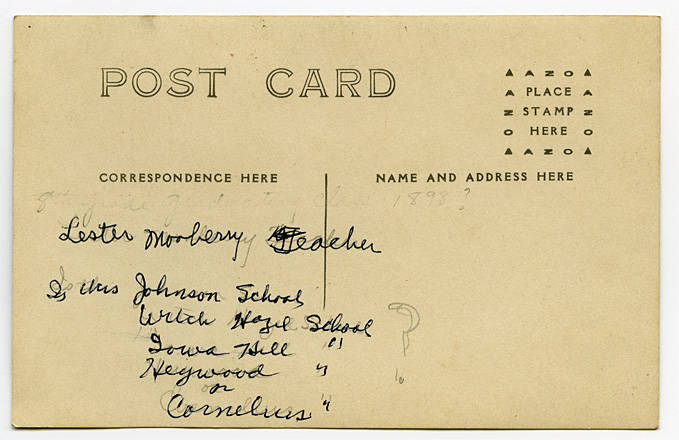 POST CARD
▲ A Z O ▲
A PLACE A
N STAMP N
O HERE O
▲ A Z O ▲
CORRESPONDENCE HERE
NAME AND ADDRESS HERE
8th grade graduating class 1898?
Lester Mooberry Teacher
Is this Johnson School
Witch Hazel School
Iowa Hill "
Heywood "
or
Cornelius "
?